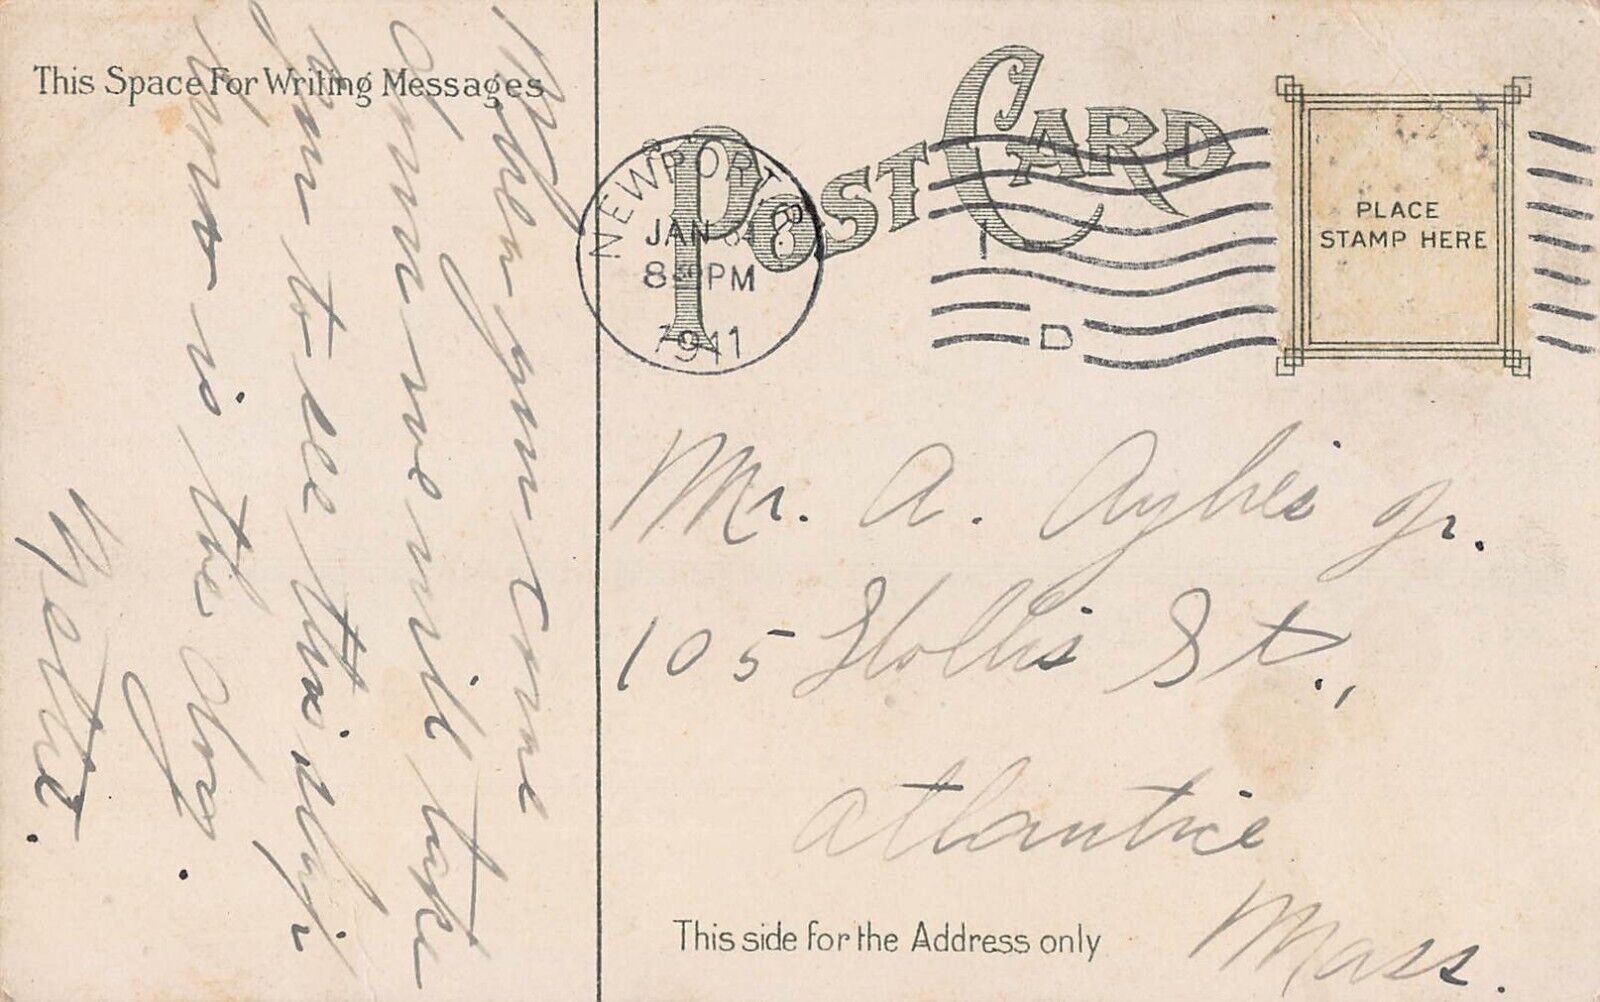 This Space For Writing Messages
POST CARD
PLACE
STAMP HERE
NEWPORT
JAN
8 PM
1911
D
When you come
down we will take
you to see this ship.
is the day
Nettie.
Mr. A. Aybes Jr.
105 Hollis St.,
Atlantic
Mass.
This side for the Address only